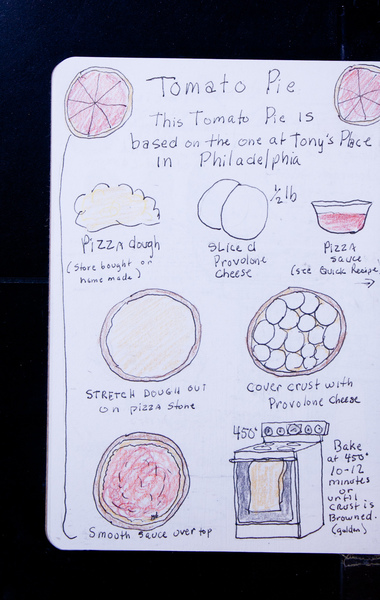 Tomato Pie
This Tomato Pie is
based on the one at Tony's Place
in Philadelphia
1/2 lb
Pizza dough
(Store bought or
home made)
Sliced
Provolone
Cheese
Pizza
sauce
(see Quick Recipe
→
Stretch dough out
on pizza stone
Cover crust with
Provolone Cheese
Smooth sauce over top
450°
Bake
at 450°
10-12
minutes
or
until
crust is
Browned.
(golden)